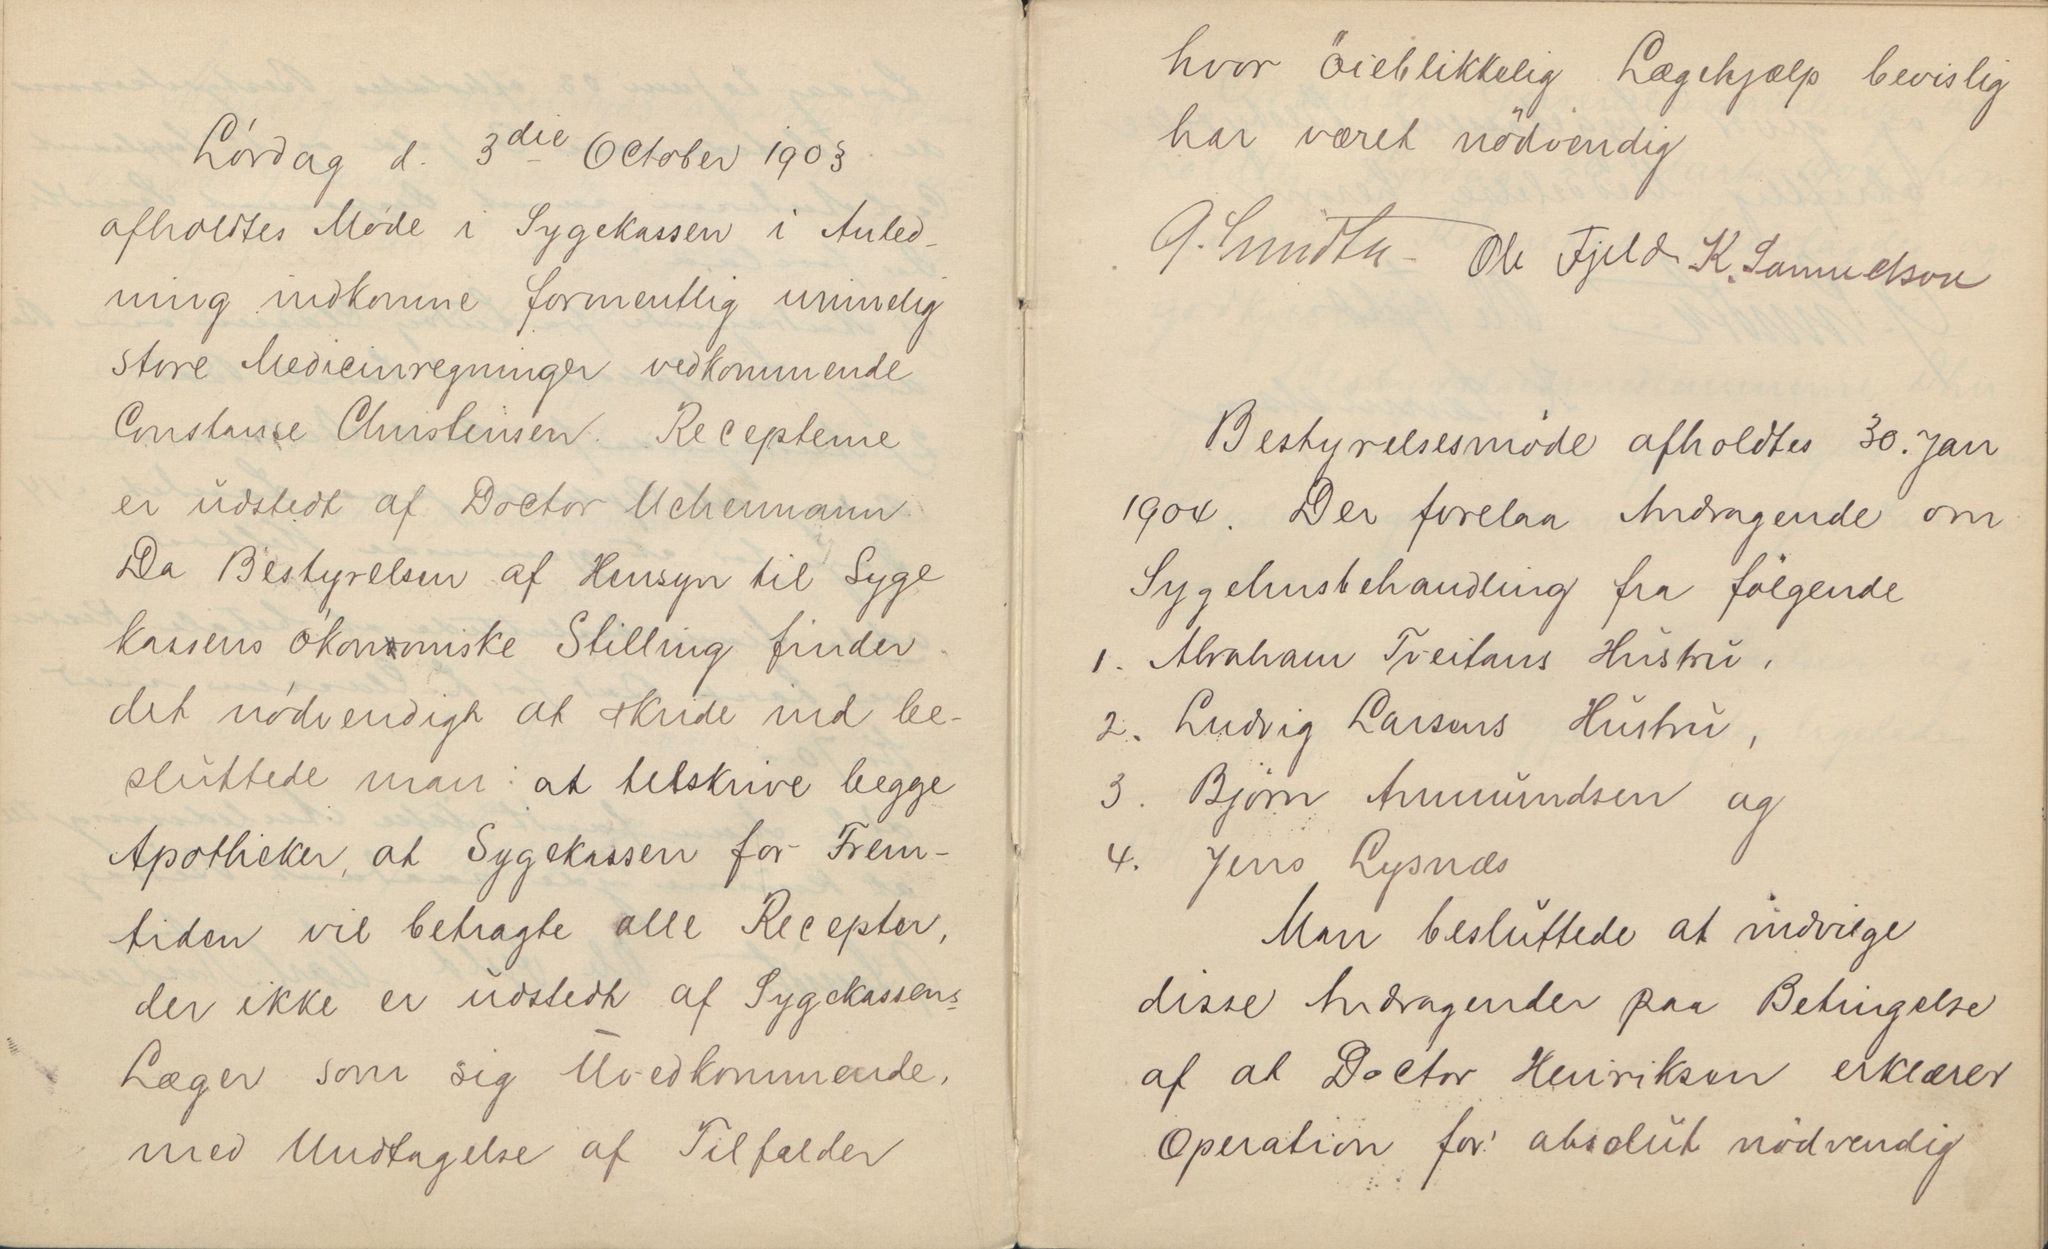 Lørdag d. 3die October 1903
afholdtes Møde i Sygekassen i Anled-
ning indkomne formentlig urimelig
store Medicinregninger vedkommende
Constance Christensen. Recepterne
er udstedt af Doctor Uchermann
Da Bestyrelsen af Hensyn til Syge
kassens økonomiske Stilling finder
det nødvendigt at skride ind be-
sluttede man: at tilskrive begge
Apotheker, at Sygekassen for Frem-
tiden vil betragte alle Recepter,
der ikke er udstedt af Sygekassens
Læger som sig Uvedkommende,
med Undtagelse af Tilfælder
hvor öieblikkelig Lægehjælp bevislig
har været nödvendig
Ole Fjeld K. Samuelson
Bestyrelsesmöde afholdtes 30. Jan
1904. Der forelaa Andragende om
Sygehusbehandling fra følgende
1. Abraham Treitans Hustru,
2. Ludvig Larsens Hustru,
3. Björn Ammundsen og
4. Jens Lysnæs
Man besluttede at indvilge
disse Andragender paa Betingelse
af at Doctor Henriksen erklærer
Operation for absolut nödvendig